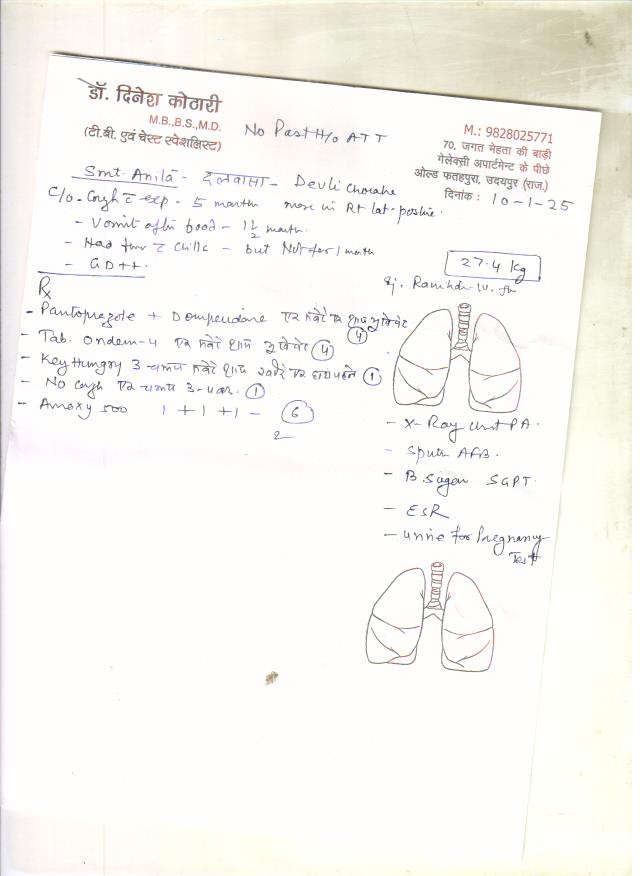 डॉ. दिनेश कोठारी
M.B.,B.S.,M.D.
(टी.बी. एवं चेस्ट स्पेशलिस्ट)
No Past H/o ATT
M.: 9828025771
70, जगत मेहता की बाड़ी
गेलेक्सी अपार्टमेन्ट के पीछे
ओल्ड फतहपुरा, उदयपुर (राज.)
दिनांक : 10-1-25
Smt. Anila - दलवासा -
C/o - Cough c exp - 5 month more in Rt lat-
- Vomit after food - 1 1/2 month.
- Had fever c chills - but Not for 1 month
- GD++.
27.4 kg
Rx
- Pantoprazole + Domperidone एक सवेरे एक शाम भूखे पेट (4)
- Tab. Ondem-4 एक सवेरे शाम भूखे पेट (4)
- Key Hungry 3 चम्मच सवेरे शाम (1)
- No Cough एक चम्मच 3-वार. (1)
- Amoxy 500 1 + 1 + 1 - (6)
2
- X-Ray chest PA.
- Sputm AFB.
- B. Sugar SGPT.
- ESR
- Urine for Pregnancy
Test